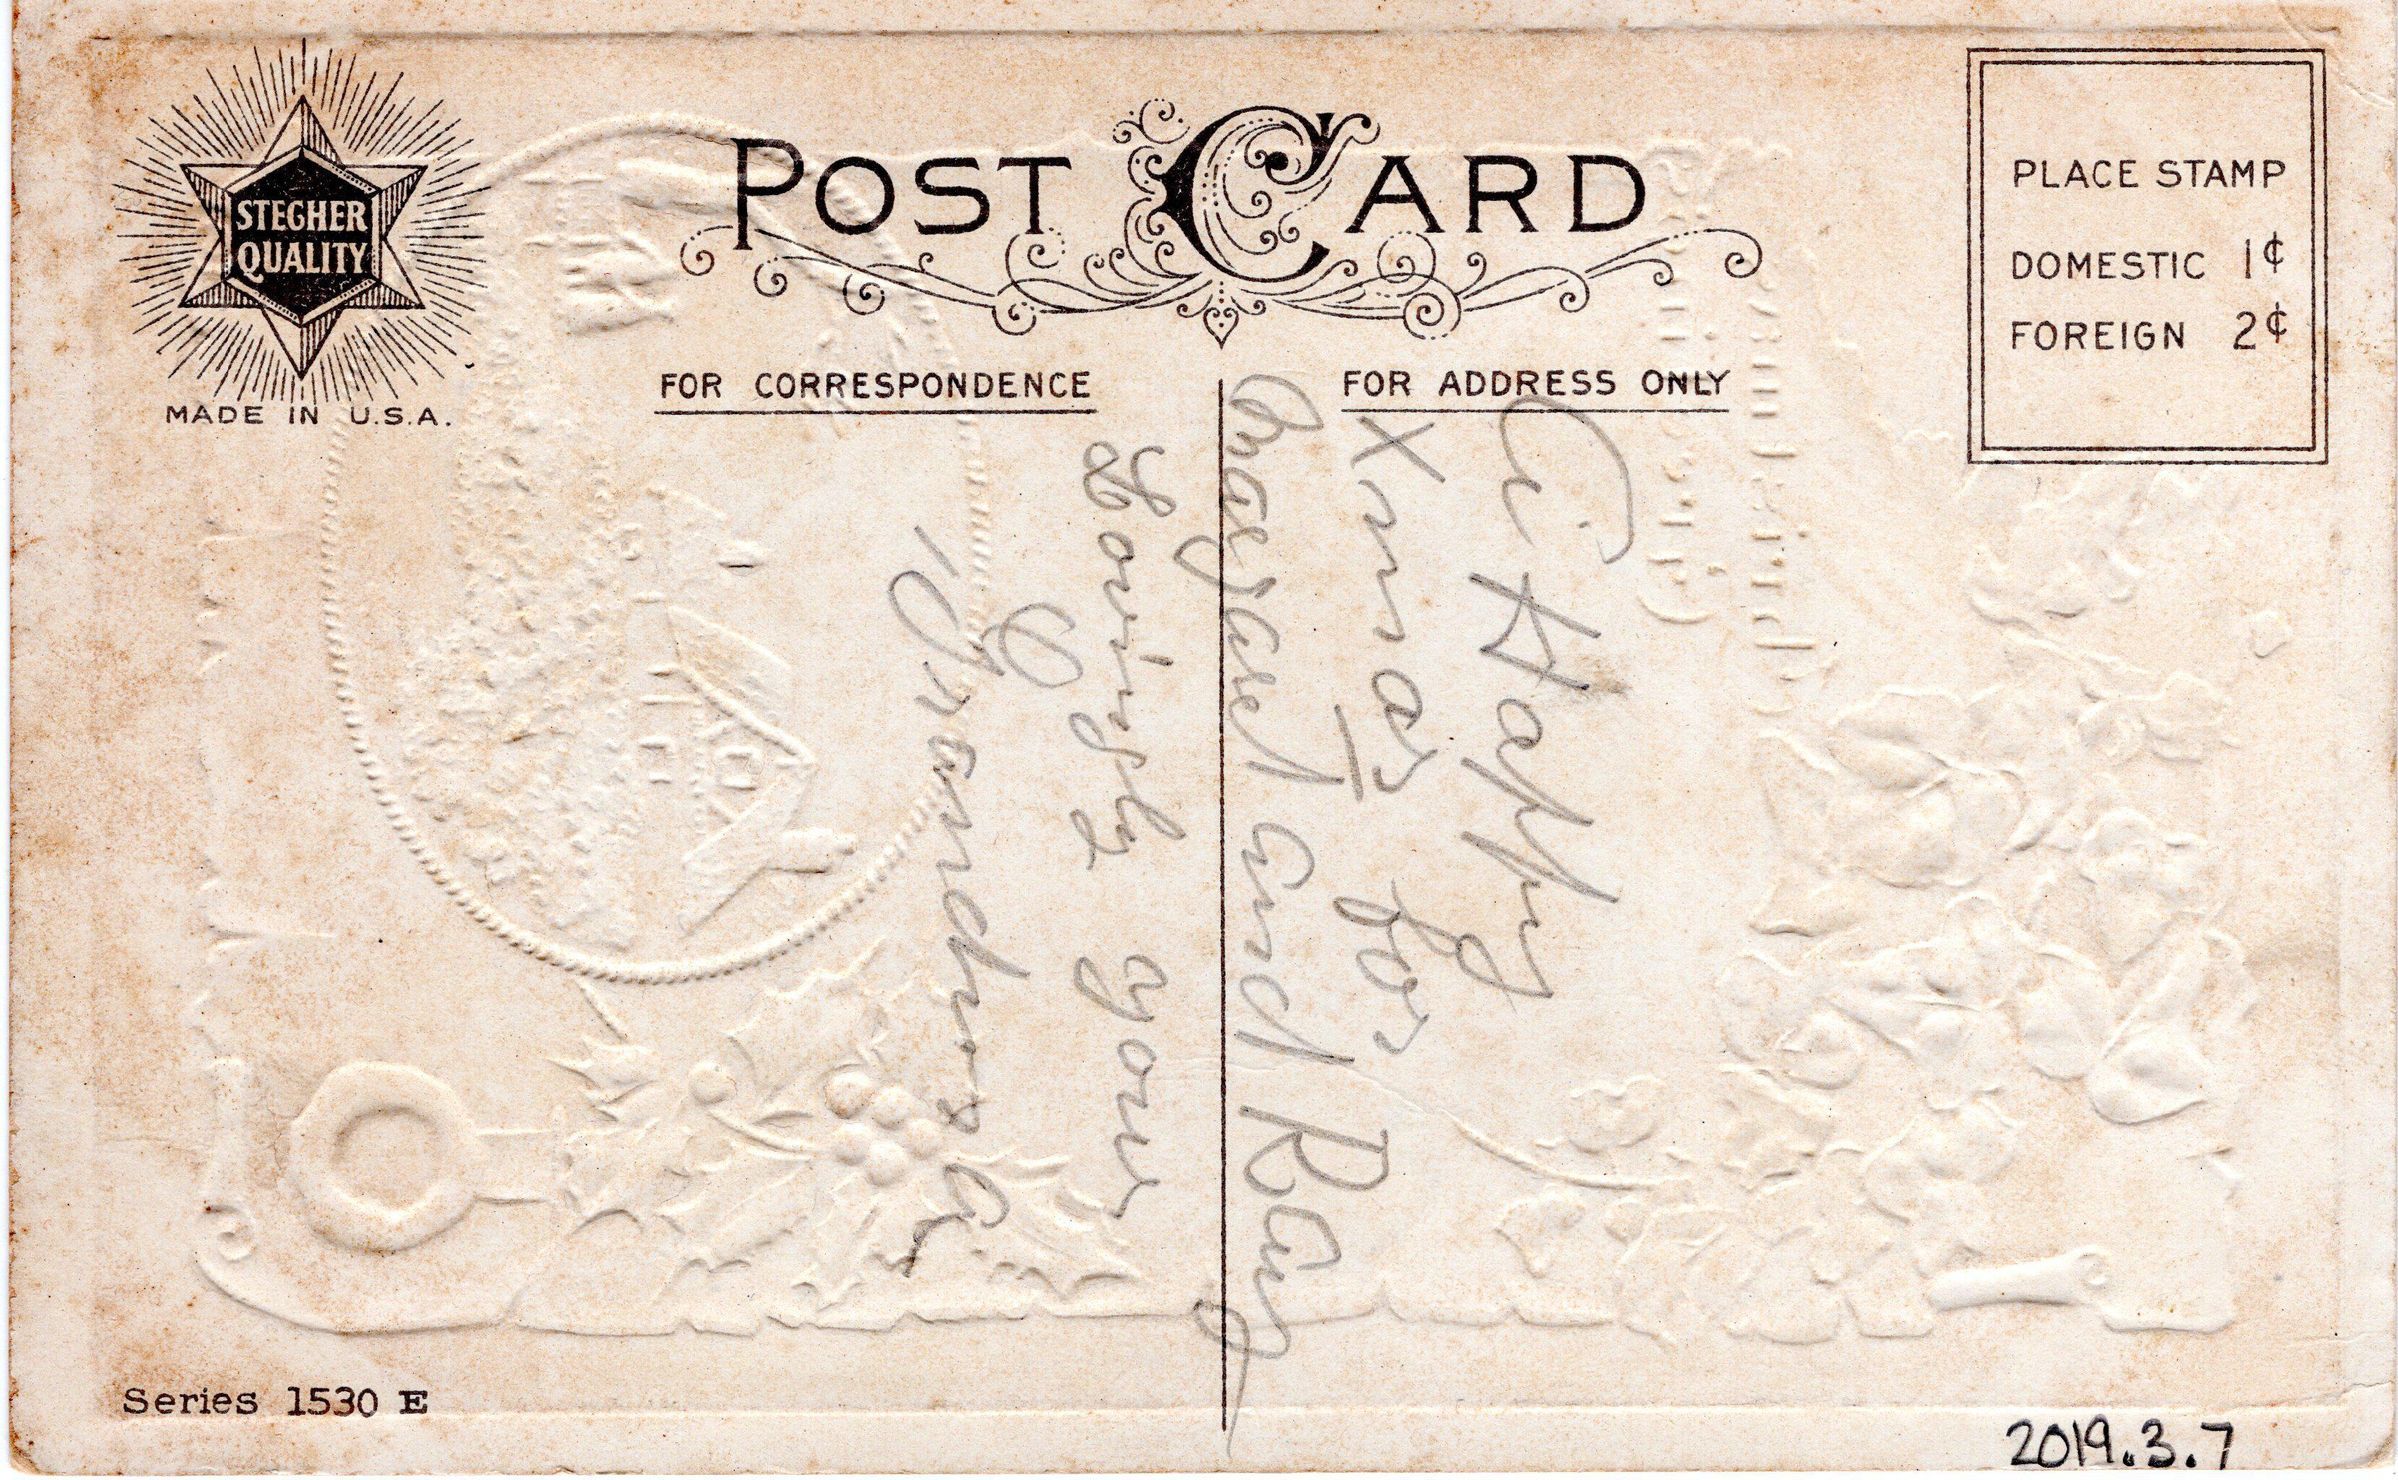 STEGHER
QUALITY
MADE IN U.S.A.
POST CARD
FOR CORRESPONDENCE
FOR ADDRESS ONLY
PLACE STAMP
DOMESTIC 1¢
FOREIGN 2¢
A Happy
Xmas for
Margaret and Ray
Lovingly your
Grandma
Series 1530 E
2019.3.7